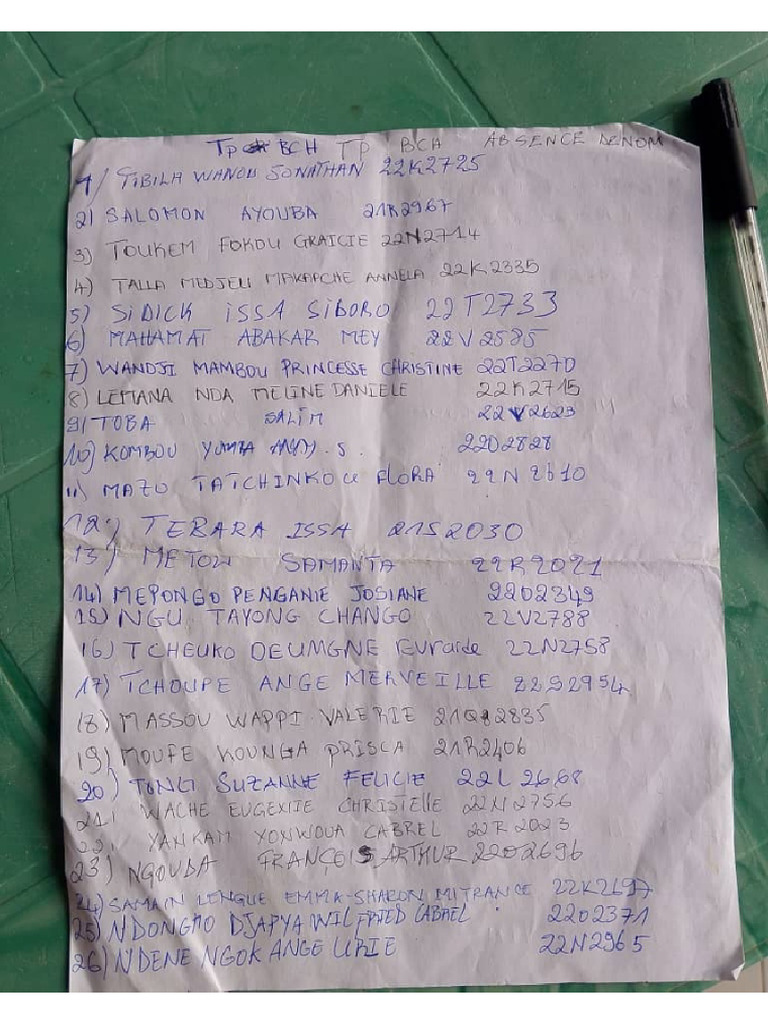 TP BCH TP BCA ABSENCE DENOM
1) TIBILA WANOU JONATHAN 22K2725
2) SALOMON AYOUBA 21R2967
3) TOUKEM FOKOU GRAICIE 22N2714
4) TALLA MEDJEU MAKAPCHE ANNELA 22K2335
5) SIDICK ISSA SIBORO 22T2733
6) MAHAMAT ABAKAR MEY 22V2585
7) WANDJI MAMBOU PRINCESSE CHRISTINE 22T2270
8) LEMANA NDA MELINE DANIELE 22K2715
9) TOBA SALIM 22V2623
10) KOMBOU S. 22O2828
11) MAZO TATCHINKOU FLORA 22N2610
12) TEBARA ISSA 21S2030
13) METOW SAMANTA 22R2021
14) MEPONGO PENGANIE JOSIANE 22O2349
15) NGU TAYONG CHANGO 22V2788
16) TCHEUKO DEUMGNE Euraide 22N2758
17) TCHOUPE ANGE MERVEILLE 22S2954
18) MASSOU WAPPI VALERIE 21Q2835
19) MOUFE KOUNGA PRISCA 21R2406
20) TONGI SUZANNE FELICIE 22L2668
21) WACHE EUGENIE CHRISTELLE 22N2756
22) YANKAM YONWOUA CABREL 22R2023
23) NGOUDA FRANÇOIS ARTHUR 22O2696
24) SAMAIN LENGUE EMMA-SHARON MITRANCE 22K2197
25) NDONGMO DJAPYA WILFRIED CABREL 22O2371
26) NDENE NGOK ANGE URIE 22N2965